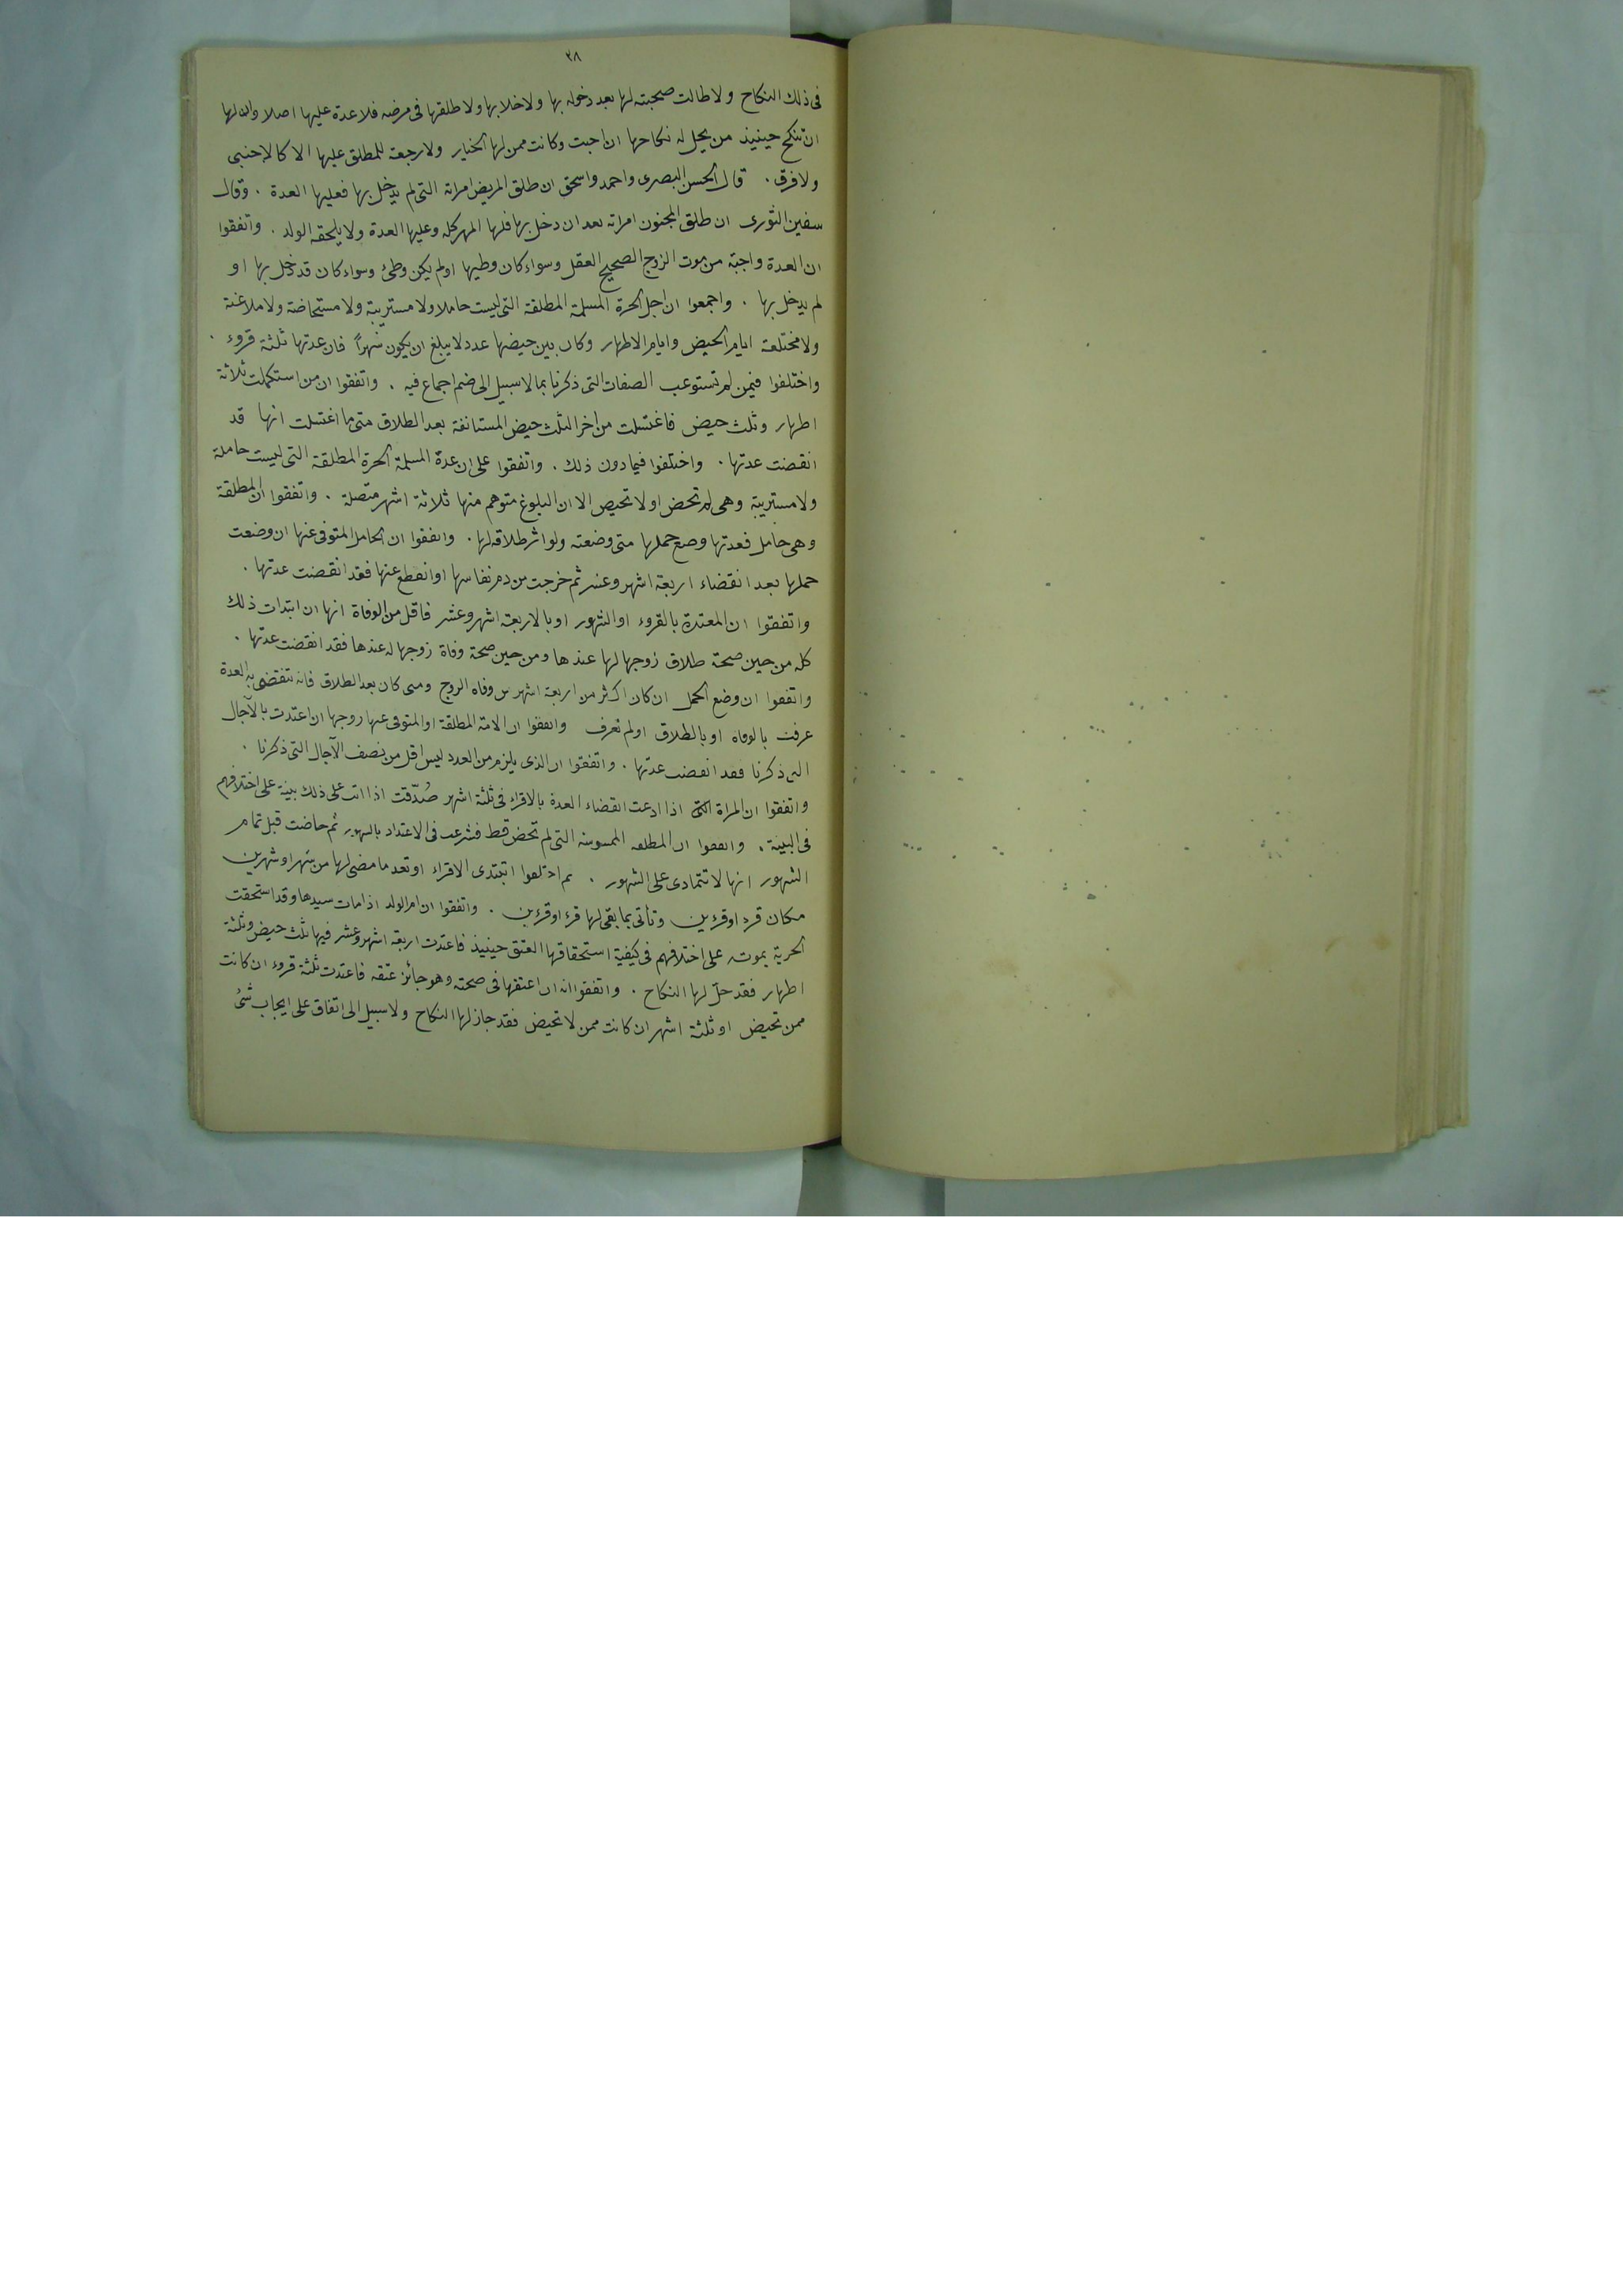 ٢٨
فى ذلك النكاح ولا طالت صحبته لها بعد دخوله بها ولا خلا بها ولا طلقها فى مرضه فلا عدة عليها اصلا وان لها
ان تنكح حينيذ من يحل له نكاحها ان احبت وكانت ممن لها الخيار ولا رجعة للمطلق عليها الا كالاجنبى
ولا فرق . قال الحسن البصرى واحمد واسحق ان طلق المريض امراته التى لم يدخل بها فعليها العدة . وقال
سفين الثورى ان طلق المجنون امراته بعد ان دخل بها فلها المهر كله وعليها العدة ولا يلحقه الولد . واتفقوا
ان العدة واجبة من موت الزوج الصحيح العقل وسواء كان وطيها او لم يكن وطئ وسواء كان قد دخل بها او
لم يدخل بها . واجمعوا ان اجل الحرة المسلمة المطلقة التى ليست حاملا ولا مستريبة ولا مستحاضة ولا ملاعنة
ولا مختلعة ايام الحيض وايام الاطهار وكان بين حيضها عدد لا يبلغ ان يكون شهراً فان عدتها ثلثة قروء .
واختلفوا فيمن لم تستوعب الصفات التى ذكرنا بما لا سبيل الى ضم اجماع فيه . واتفقوا ان من استكملت ثلاثة
اطهار وثلث حيض فاغتسلت من اخر الثلث حيض المستانفة بعد الطلاق متى ما اغتسلت انها قد
انقضت عدتها . واختلفوا فيما دون ذلك . واتفقوا على ان عدة المسلمة الحرة المطلقة التى ليست حاملة
ولا مستريبة وهى لم تحض او لا تحيص الا ان البلوغ متوهم منها ثلاثة اشهر متصلة . واتفقوا ان المطلقة
وهى حامل فعدتها وضع حملها متى وضعته ولو اثر طلاقه لها . واتفقوا ان الحامل المتوفى عنها ان وضعت
حملها بعد انقضاء اربعة اشهر وعشر ثم خرجت من دم نفاسها او انقطع عنها فقد انقضت عدتها .
واتفقوا ان المعتدة بالقروء او الشهور او بالاربعة اشهر وعشر فاقل من الوفاة انها ان ابتدات ذلك
كله من حين صحة طلاق زوجها لها عندها ومن حين صحة وفاة زوجها له عندها فقد انقضت عدتها .
واتفقوا ان وضع الحمل ان كان اكثر من اربعة اشهر من وفاه الزوج ومتى كان بعد الطلاق فانه تنقضى به العدة
عرفت بالوفاه او بالطلاق او لم تعرف واتفقوا ان الامة المطلقة او المتوفى عنها زوجها ان اعتدت بالآجال
التى ذكرنا فقد انقضت عدتها . واتفقوا ان الذى يلزم من العدد ليس اقل من نصف الآجال التى ذكرنا .
واتفقوا ان المراة اذا ادعت انقضاء العدة بالاقراء فى ثلثة اشهر صُدّقت اذا اتت على ذلك ببينة على اختلافهم
فى البينة . واتفقوا ان المطلقه الممسوسة التى لم تحض قط فشرعت فى الاعتداد بالشهور ثم حاضت قبل تمام
الشهور انها لا تتمادى على الشهور . ثم اختلفوا اتبتدى الاقراء او تعد ما مضى لها من شهر او شهرين
مكان قرء او قرءين وتأتى بما بقى لها قرء او قرءين . واتفقوا ان ام الولد اذا مات سيدها وقد استحقت
الحرية بموته على اختلافهم فى كيفية استحقاقها العتق حينيذ فاعتدت اربعة اشهر وعشر فيها ثلث حيض وثلثة
اطهار فقد حلّ لها النكاح . واتفقوا انه ان اعتقها فى صحته وهو جائز عتقه فاعتدت ثلثة قروء ان كانت
ممن تحيض او ثلثة اشهر ان كانت ممن لا تحيض فقد جاز لها النكاح ولا سبيل الى اتفاق على ايجاب شئ